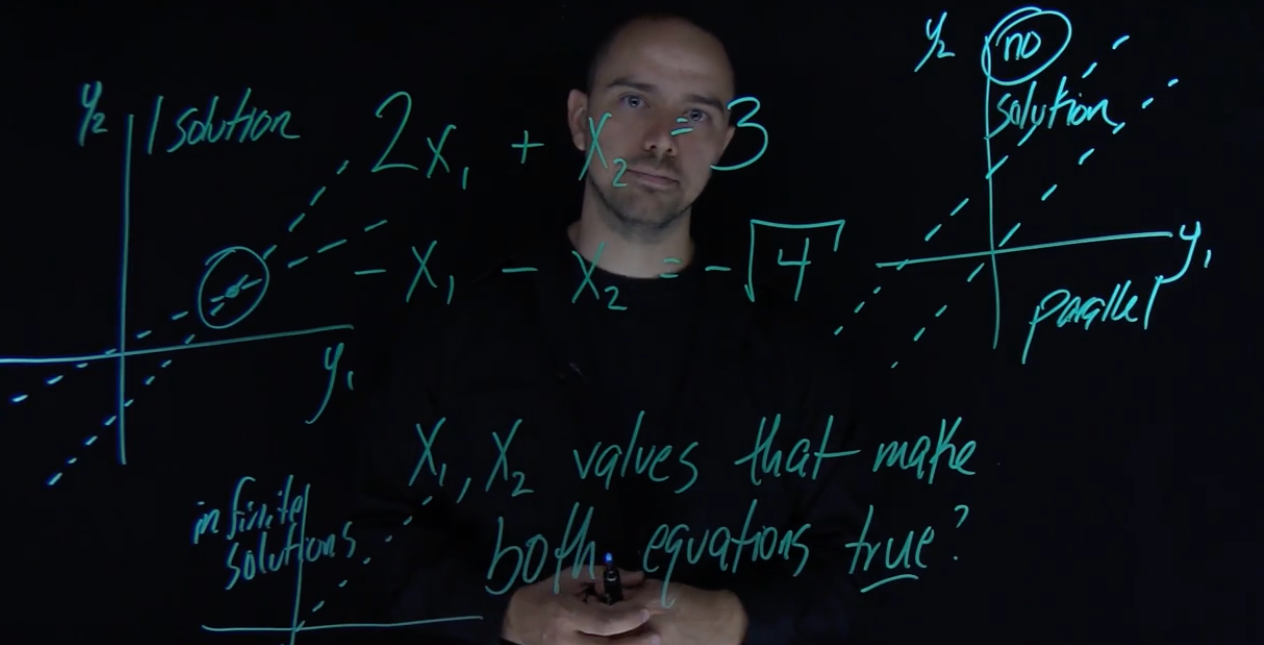 y₂
1 solution
2x₁ + x₂ = 3
- x₁ - x₂ = -√4
y₁
y₂
no
solution
y₁
parallel
x₁, x₂ values that make
both equations true?
infinite
solutions